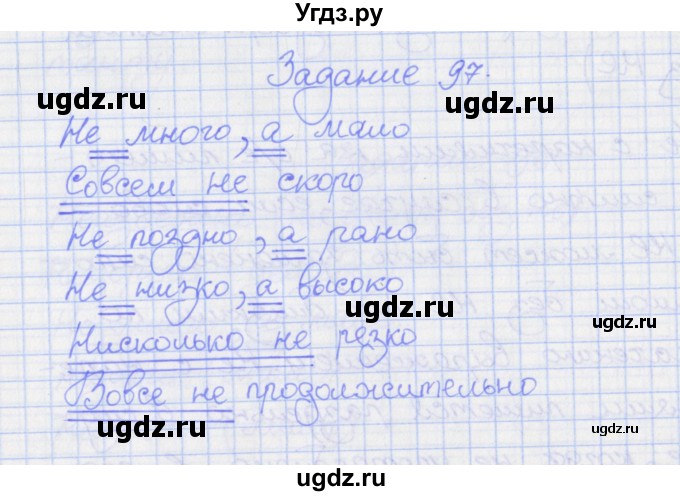 Угдз.ру
Задание 97.
ugdz.ru
ugdz.ru
Не много, а мало
Совсем не скоро
ugdz.ru
Не поздно, а рано
ugdz.ru
Не низко, а высоко
ugdz.ru
ugdz.ru
Нисколько не резко
Вовсе не продолжительно
ugdz.ru
ugdz.ru
ugdz.ru